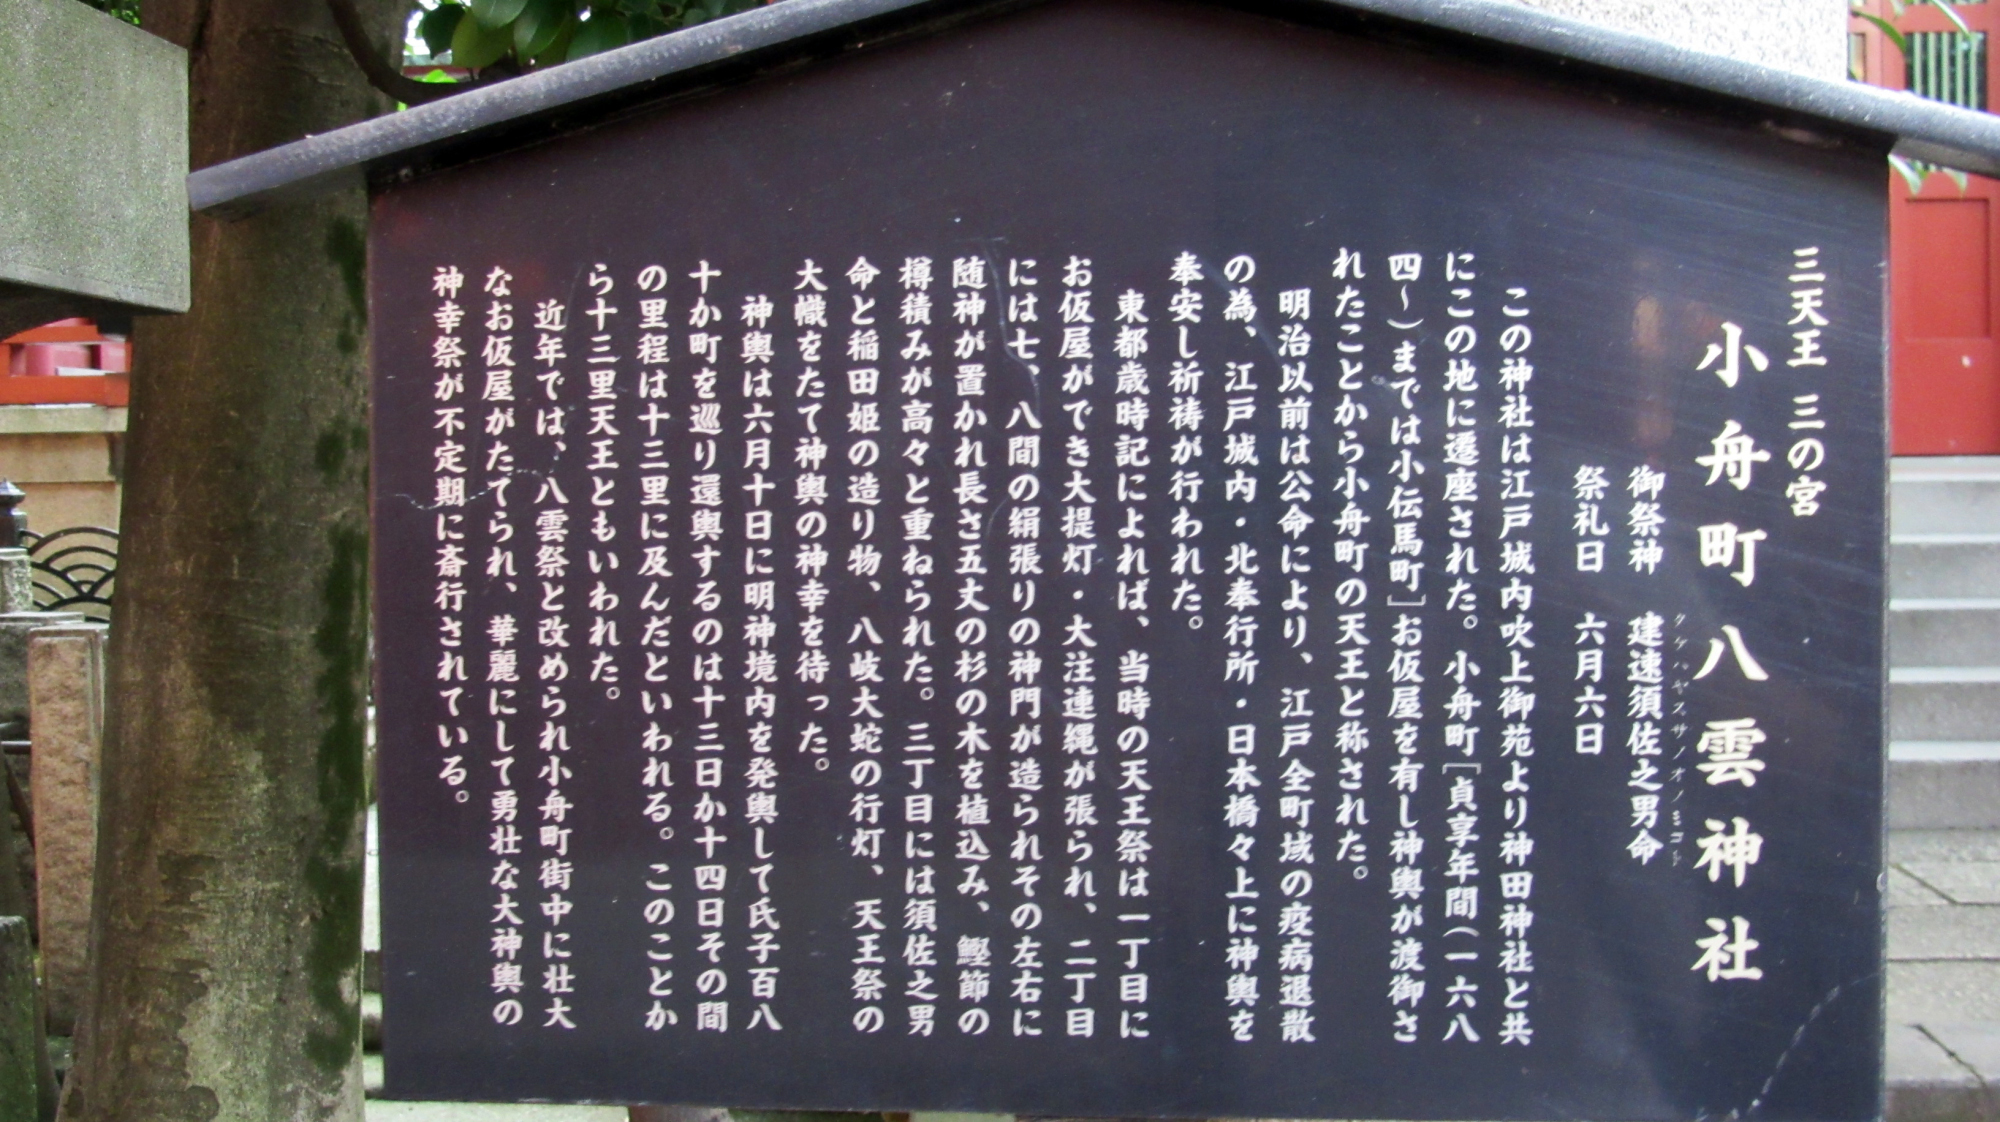 三天王 三の宮
小舟町八雲神社
御祭神 建速須佐之男命
タケハヤスサノオノミコト
祭礼日 六月六日
この神社は江戸城内吹上御苑より神田神社と共
にこの地に遷座された。小舟町［貞享年間（一六八
四～）までは小伝馬町］お仮屋を有し神輿が渡御さ
れたことから小舟町の天王と称された。
明治以前は公命により、江戸全町域の疫病退散
の為、江戸城内・北奉行所・日本橋々上に神輿を
奉安し祈祷が行われた。
東都歳時記によれば、当時の天王祭は一丁目に
お仮屋ができ大提灯・大注連縄が張られ、二丁目
には七、八間の絹張りの神門が造られその左右に
随神が置かれ長さ五丈の杉の木を植込み、鰹節の
樽積みが高々と重ねられた。三丁目には須佐之男
命と稲田姫の造り物、八岐大蛇の行灯、天王祭の
大幟をたて神輿の神幸を待った。
神輿は六月十日に明神境内を発輿して氏子百八
十か町を巡り還輿するのは十三日か十四日その間
の里程は十三里に及んだといわれる。このことか
ら十三里天王ともいわれた。
近年では、八雲祭と改められ小舟町街中に壮大
なお仮屋がたてられ、華麗にして勇壮な大神輿の
神幸祭が不定期に斎行されている。